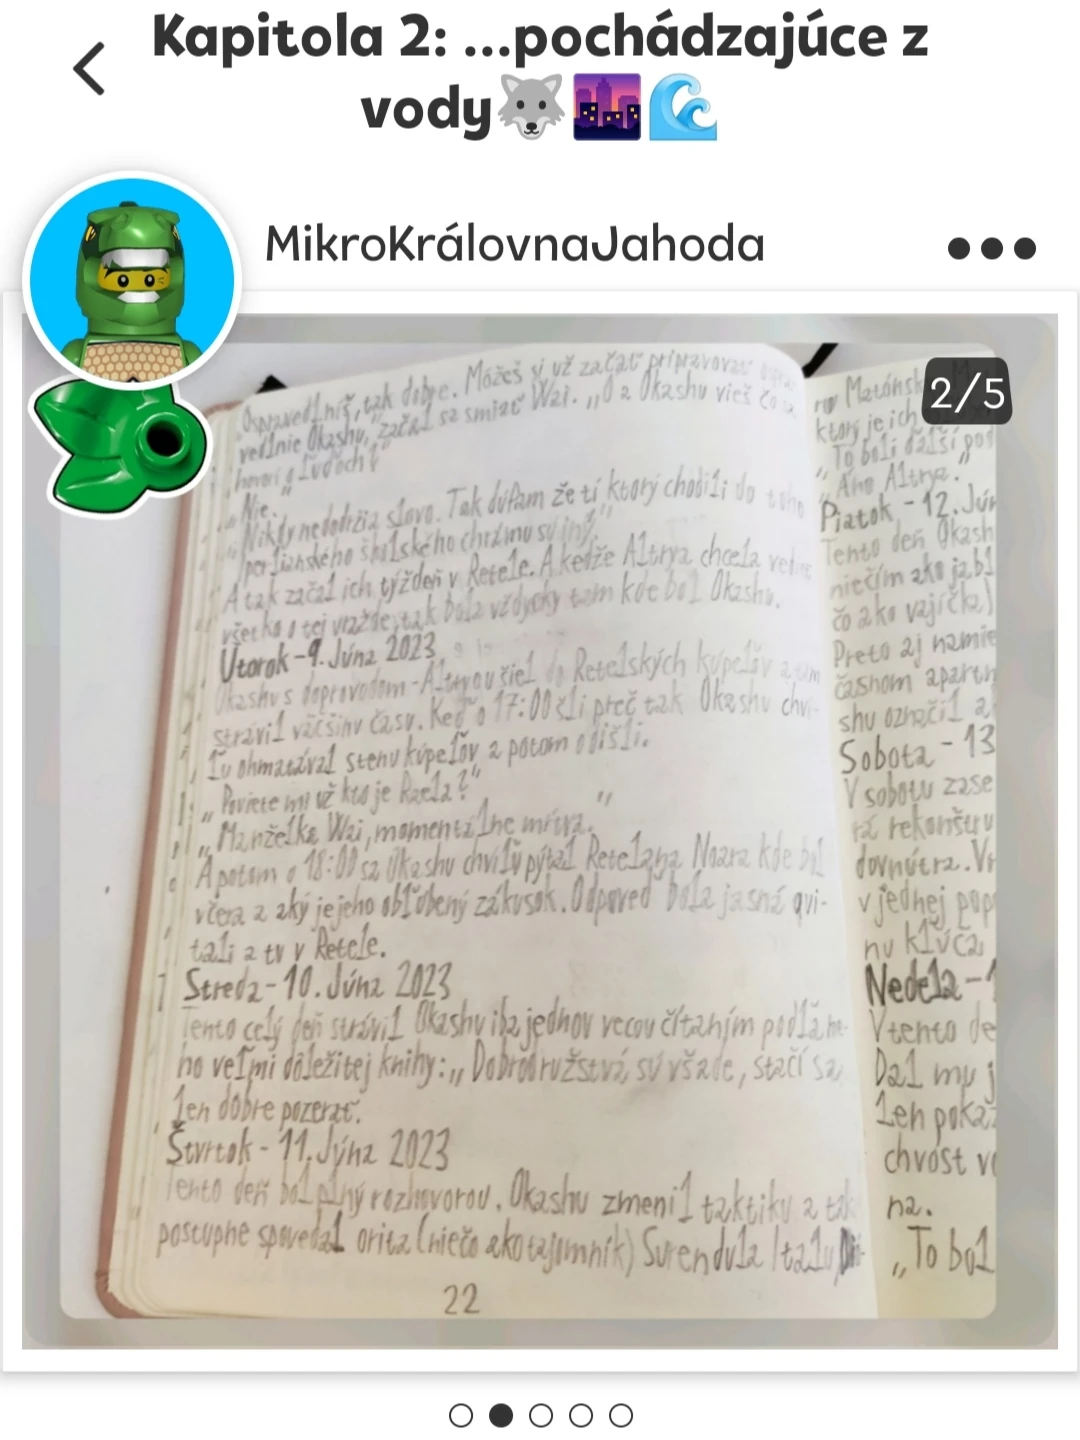 Kapitola 2: ...pochádzajúce z
vody
MikroKrálovnaJahoda
2/5
Ospravedlníš, tak dobre. Môžeš si už začať pripravovať
vedlnie Okashu," začal sa smiať Wai. „O a Okashu vieš čo sa
hovorí o ľuďoch?"
„Nie."
„Nikdy nedodržia slovo. Tak dúfam že tí ktorý chodili do toho
perlianského školského chrámu sú iní."
A tak začal ich týždeň v Retele. A kedže Altrya chcela
všetko o tej vražde, tak bola vždycky tam kde bol Okashu.
Utorok - 9. Júna 2023
Okashu s doprovodom - Altryou šiel do Retelských kúpeľov a tam
strávil väčšinu času. Keď o 17:00 šli preč tak Okashu chví-
ľu ohmatával stenu kúpeľov a potom odišli.
„Poviete mi už kto je Raela?"
„Manželka Wai, momentálne mŕtva."
A potom o 18:00 sa Okashu chvíľu pýtal Retelana Noara kde bol
včera a aký je jeho obľúbený zákusok. Odpoveď bola jasná qvi-
tali a tu v Retele.
Streda - 10. Júna 2023
Tento celý deň strávil Okashu iba jednou vecou čítaním podľa ne-
ho veľmi dôležitej knihy: „Dobrodružstvá, sú všade, stačí sa
len dobre pozerať.
Štvrtok - 11. Júna 2023
Tento deň bol plný rozhovorou. Okashu zmenil taktiku a tak
postupne spovedal orita (niečo ako tajomník) Surendula Italu
22
Matónsk
ktorý je ich
„To boli ďalší
„Áno Altrya.
Piatok - 12. Jún
Tento deň Okash
niečím ako jabl
čo ako vajíčka)
Preto aj namie
časnom apartm
shu označil a
Sobota - 13
V sobotu zase
rá rekonštru
dovnútra. Vr
v jednej pop
nu kľúča
Nedela - 1
V tento de
Dal mu j
len pokaz
chvost v
na.
„To bol